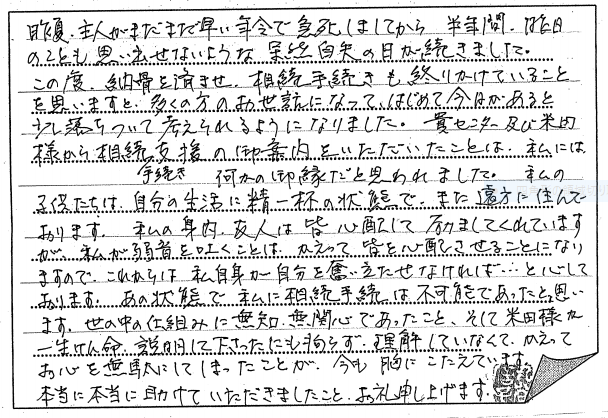 昨夏、主人がまだまだ早い年令で急死しましてから 半年間、昨日
のことも思い出せないような 茫然自失の日が続きました。
この度、納骨を済ませ、相続手続きも終りかけていること
を思いますと、多くの方のお世話になって、はじめて今日があると
少し落ちついて考えられるようになりました。 貴センター及び米田
様から相続支援の御案内をいただいたことは、私には
手続き 何かの御縁だと思われました。 私の
子供たちは、自分の生活に精一杯の状態で、また遠方に住んで
おります。 私の身内、友人は皆心配して 励ましてくれています
が、私が弱音を吐くことは、かえって皆を心配させることになり
ますので、これからは私自身が自分を奮い立たせなければ…と心して
おります。 あの状態で私に相続手続は不可能であったと思い
ます。世の中の仕組みに無知、無関心であったこと、そして米田様が
一生けん命、説明して下さったにも拘らず、理解していなくて、かえって
お心を無駄にしてしまったことが、今も胸にこたえています。
本当に本当に助けていただきましたこと、お礼申し上げます。